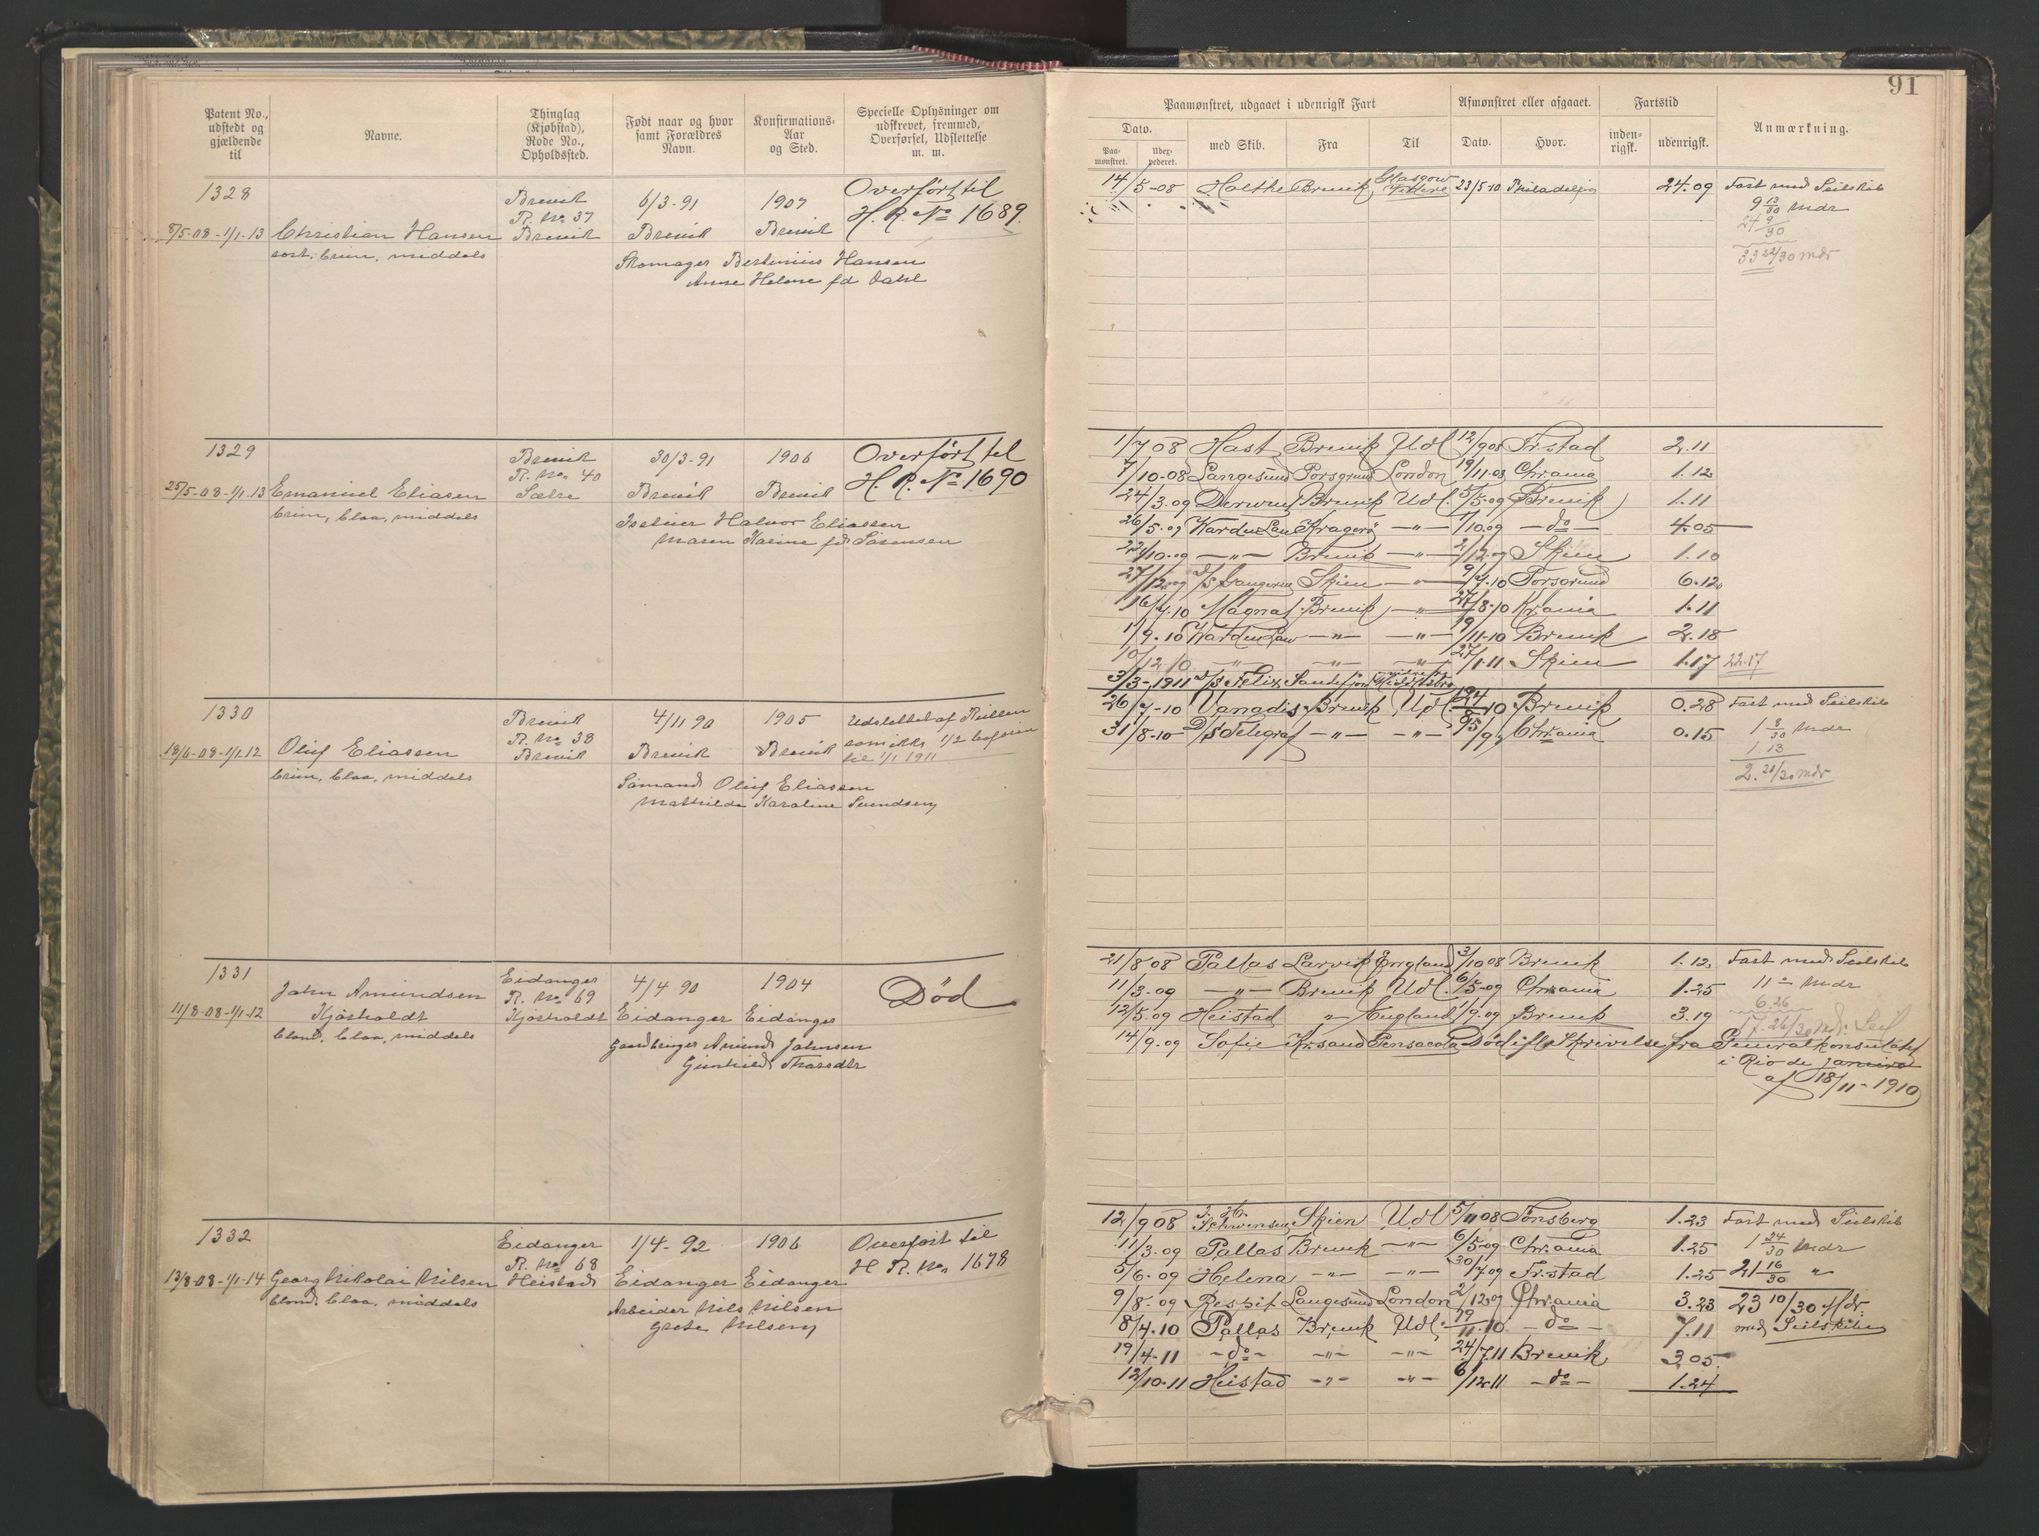 91
Patent No., udstedt og gjældende til
Navne.
Thinglag (Kjøbstad), Rode No., Opholdssted.
Født naar og hvor samt Forældres Navn.
Konfirmations-Aar og Sted.
Specielle Oplysninger om udskrevet, fremmed, Overførsel, Udslettelse m. m.
Paamønstret, udgaaet i udenrigsk Fart
Afmønstret eller afgaaet.
Fartstid
Anmærkning.
Dato.
Paa-mønstret.
Udex-pederet.
med Skib.
Fra
Til
Dato.
Hvor.
inden-rigsk.
udenrigsk.
1328
Brevik
6/3-91
1907
Overført til
R. No 37
H. R. No 1689.
8/5-08-1/1-13 Christian Hansen Brevik Brevik Brevik
sort, brun, middels
Skomager Bertinius Hansen
Anne Helene fd Dahl
14/5-08 Holthe Brevik Glasgow 23/5-10 Philadelphia 24.09 Fart med Seilskib
9 13/30 Mdr
24 9/30
33 22/30 mdr
1329
Brevik 30/3-91 1906 Overført til
R. No 40
H. R. No 1690
25/5-08-1/1-13 Emanuel Eliasen Brevik Brevik
brun, blaa, middels
Halvor Eliassen
Maren Karine fd Sørensen
1/7 08 Hast Brevik Udl 12/9 08 Fr.stad 2.11
7/10-08 Langesund Porsgrund London 19/11-08 Chr.ania 1.12
24/3.09 Brevik Udl. 5/5-09 Brevik 1.11
26/5.09 Kragerø -"- 7/10.09 -do- 4.05
22/10.09 -"- Brevik -"- 2/12.09 Skien 1.10
27/12.09 Skien -"- 9/7.10 Porsgrund 6.12
16/7.10 Brevik -"- 27/8-10 Kr.ania 1.11
1/9.10 -"- -"- 19/11-10 Brevik 2.18
10/12 10 -"- -"- -"- 27/1-11 Skien 1.17 22.17
3/3-1911 D/S Felix Sandefjord
1330
Brevik 4/11 90 1905 Udslettet af Rullen
R. No 38
som ikke 1/2
18/6-08-1/1-12 Oluf Eliassen Brevik Brevik Brevik
til 1/1 1911
brun, blaa, middels
Sømand Oluf Eliassen
Mathilde Karoline Svendsen
26/7-10 Vanadis Brevik Udl Brevik 0.28 Fart med Seilskib
31/8-10 D/S Telegraf -"- -"- Chr.ania 0.15
1 8/30 Mdr
1.13
2. 21/30 Mdr
1331
Eidanger 4/4 90 1904 Død
John Amundsen R. No 69
11/8-08-1/1-12 Kjøsholdt Kjøsholdt Eidanger Eidanger
blond, blaa, middels
Gaardbruger Amund Johnsen
Gunhild Thorsdtr
21/8 08 Pallas Larvik England 3/10 08 Brevik 1.12 Fart med Seilskib
11/3.09 -"- Brevik Udl. 6/5-09 Chr.ania 1.25 11 " Mdr
6.26
12/5.09 Heistad " England 1/9.09 Brevik 3.19
17.26/30 Mdr. Seil
14/9.09 Sofie Kr.sand Pensacola Død ifl. Skrivelse fra Generalkonsulatet
i Rio de Janeiro
af 18/11-1910
1332
Eidanger 1/4-92 1906 Overført til
R. No 68
H R. No 1678
13/8-08-1/1-14 Georg Nikolai Nilsen Heistad Eidanger Eidanger
blond, blaa, middels
Arbeider Nils Nilsen
Grete Nilsen
12/9 08 Schwensen Skien Udl 5/11 08 Tønsberg 1.23 Fart med Seilskib
11/3.09 Pallas Brevik -"- 6/5-09 Chr.ania 1.25 1 24/30 Mdr
5/6.09 Helena -"- -"- 30/7.09 Fr.stad 1.25 21 16/30 "
9/8.09 Respit Langesund London 2/12 09 Chr.ania 3.23 23 10/30 Mdr.
8/4.10 Pallas Brevik Udl. 19/11.10 -do- 7.11 med Seilskibe
19/4-11 -do- -"- -"- 24/7.11 Brevik 3.05
12/10-11 Heistad -"- -"- 6/12-11 -do- 1.24